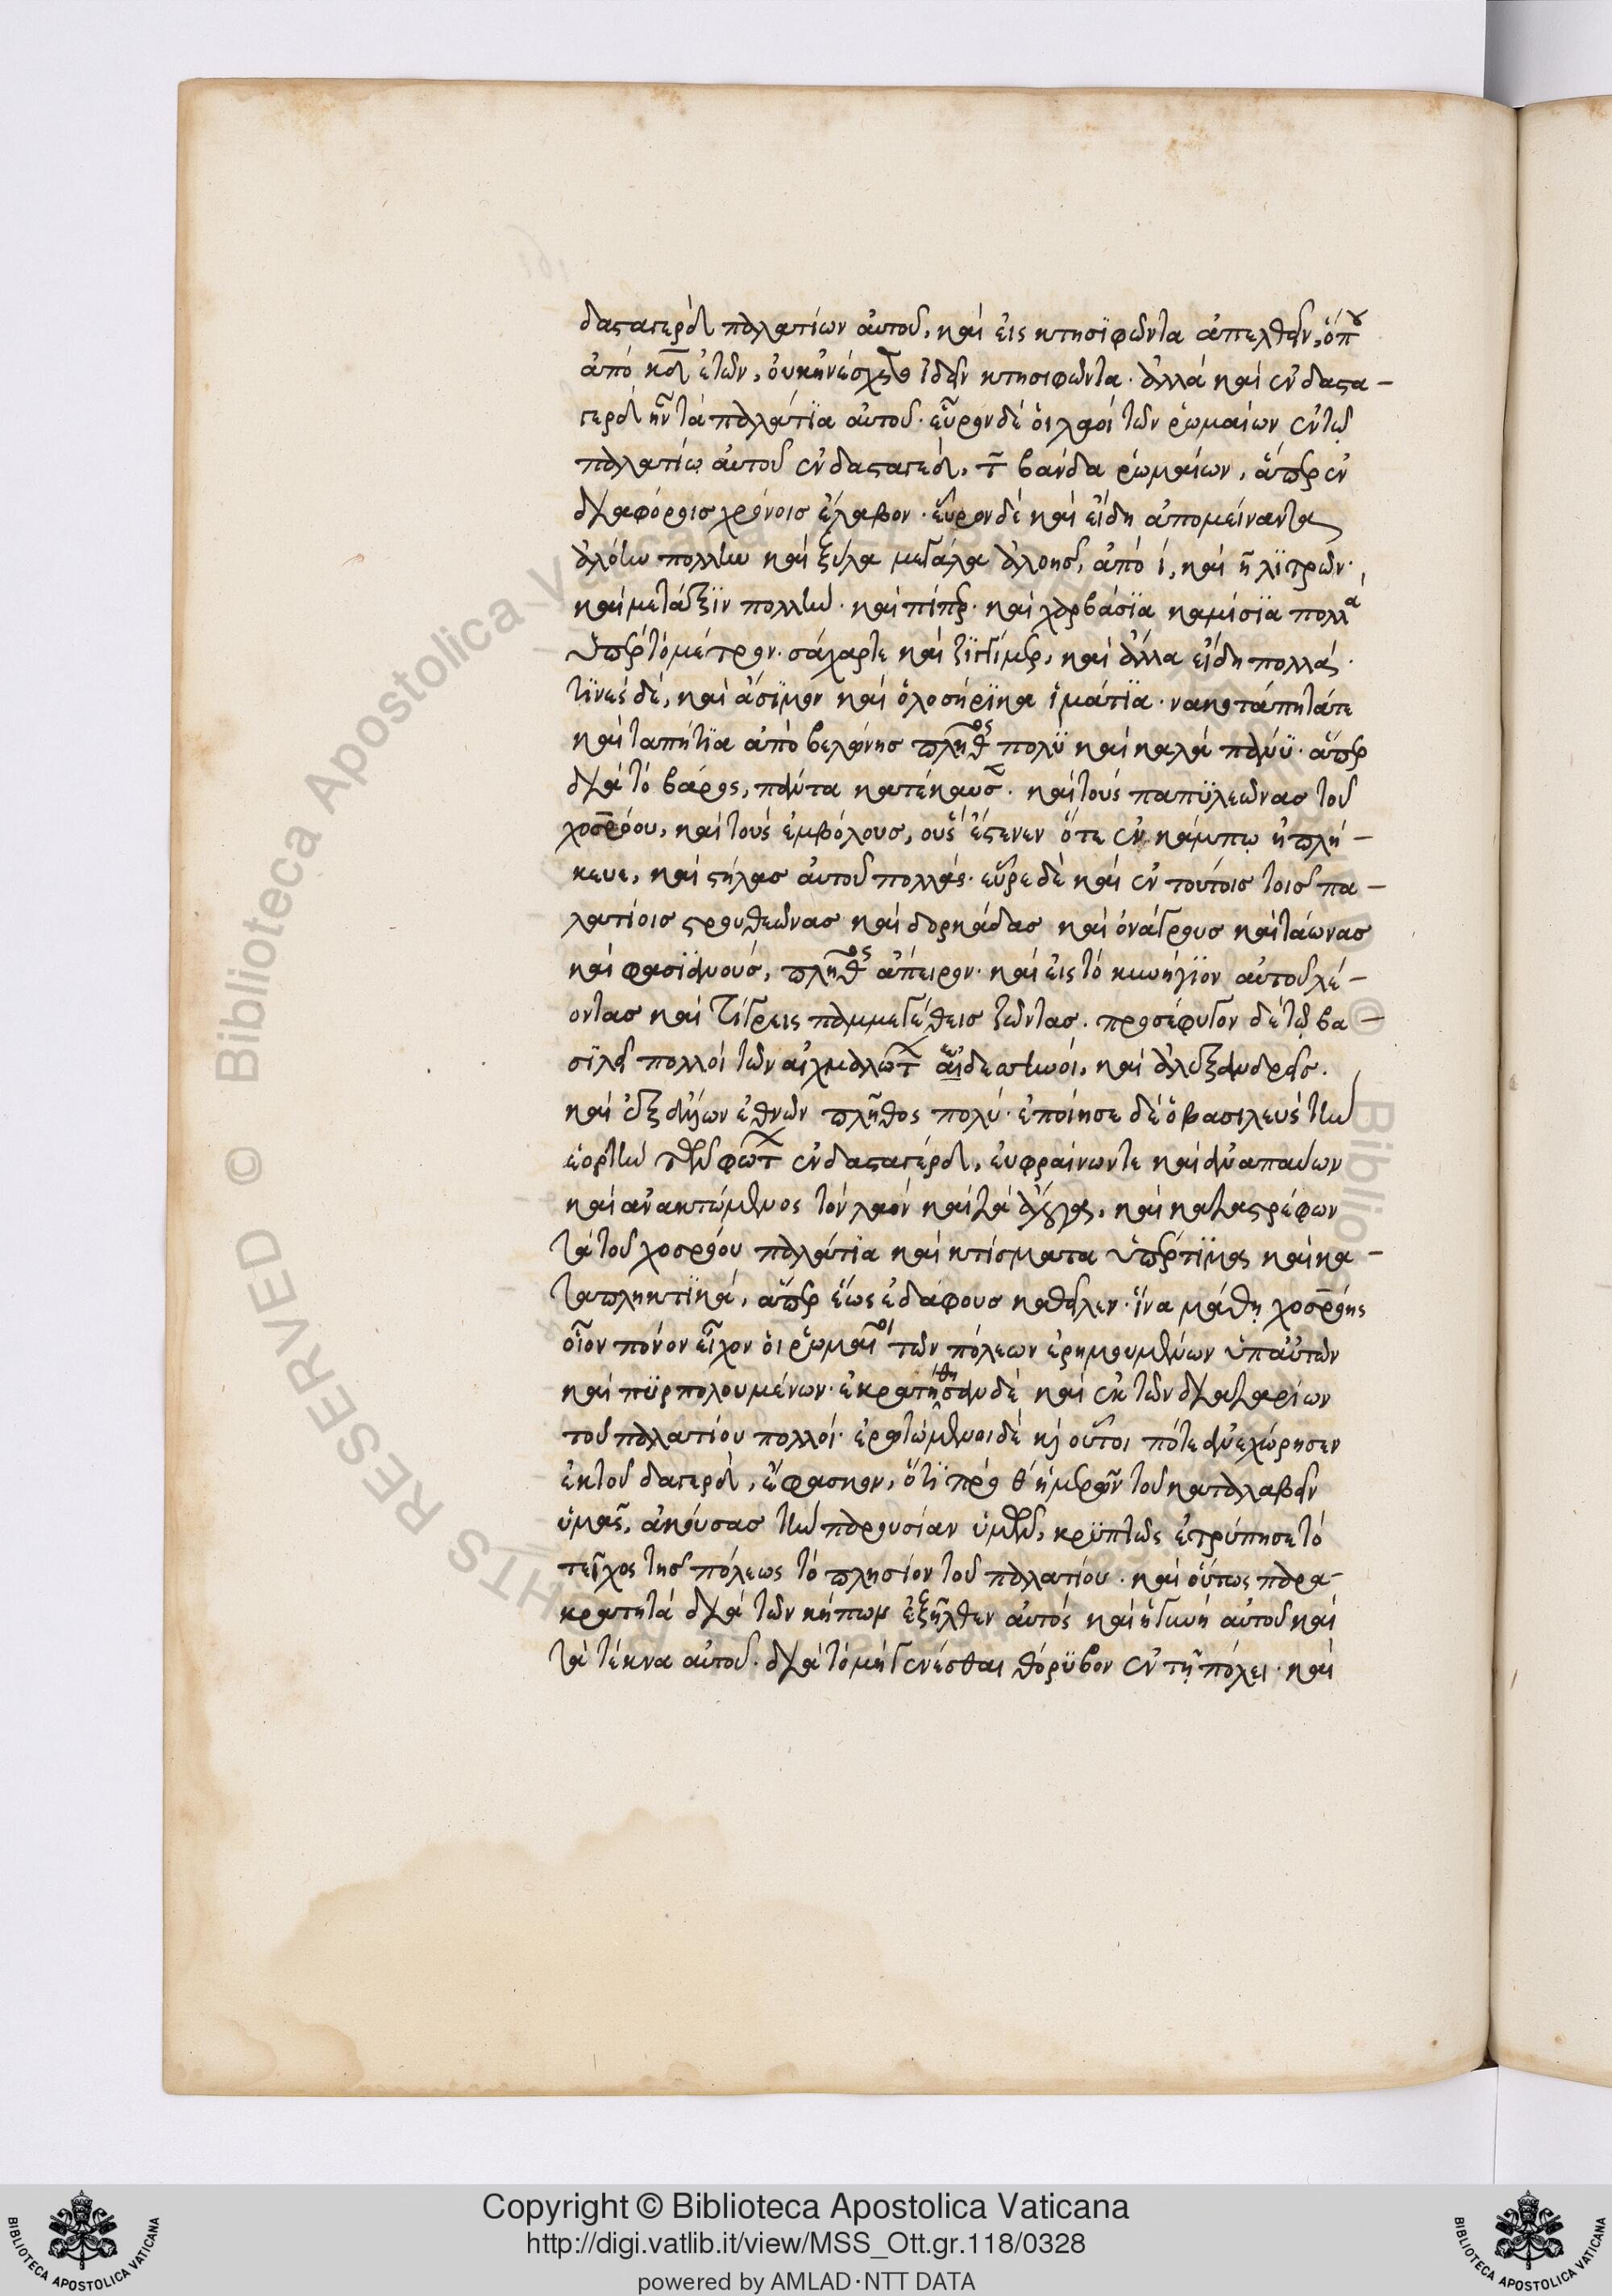 δασταγερὸδ παλατίων αὐτοῦ, καὶ εἰς κτησϊφῶντα ἀπελθεῖν, ὅπου
ἀπὸ κδ ἐτῶν, οὐκ ἠνέσχετο ἰδεῖν κτησιφῶντα. ἀλλὰ καὶ ἐν δαστα-
γερὸδ ἦν τὰ παλάτϊα αὐτοῦ. εὗρον δὲ οἱ λαοὶ τῶν ῥωμαίων ἐν τῷ
παλατίῳ αὐτοῦ ἐν δασταγεὸδ, τ̄ βάνδα ῥωμαίων, ἅπερ ἐν
διαφόροις χρόνοις ἔλαβον. εὗρον δὲ καὶ εἴδη ἀπομείναντα
ἀλόην πολλὴν καὶ ξύλα μεγάλα ἀλοῆς, ἀπὸ ὁ, καὶ π̄ λϊτρῶν.
καὶ μετάξϊν πολλὴν. καὶ πίπερ. καὶ χαρβάσϊα καμίσϊα πολλὰ
ὑπὲρ τὸ μέτρον. σάχαρτε καὶ ζϊγγίμερ, καὶ ἄλλα εἴδη πολλά.
τϊνὲς δὲ, καὶ ἄσϊμον καὶ ὁλοσήρϊκα ἱμάτϊα. νακοτάπητάτε
καὶ ταπήτϊα ἀπὸ βελόνης πλῆθος πολϋ καὶ καλὰ πάνϋ. ἅπερ
διὰ τὸ βάρος, πάντα κατέκαυσε. καὶ τοὺς παπϋλεῶνας τοῦ
χοσρόου, καὶ τοὺς ἐμβόλους, οὓς ἔστενεν ὅτε ἐν κάμπῳ ἠπλή-
κευε, καὶ στήλας αὐτοῦ πολλάς. εὗρε δὲ καὶ ἐν τούτοις τοῖς πα-
λατίοις στρουθεῶνας καὶ δορκάδας καὶ ὀνάγρους καὶ ταώνας
καὶ φασϊανοὺς, πλῆθος ἄπειρον. καὶ εἰς τὸ κυνήγϊον αὐτοῦ λέ-
οντας καὶ τίγρεις παμμεγέθεις ζῶντας. προσέφυγον δὲ τῷ βα-
σϊλεῖ πολλοὶ τῶν αἰχμαλώτων αἰδεσηνοὶ, καὶ ἀλεξανδρεῖς.
καὶ ἐξ ἄλλων ἐθνῶν πλῆθος πολύ. ἐποίησε δὲ ὁ βασιλεὺς τὴν
ἑορτὴν τῶν φώτων ἐν δασταγέροδ, εὐφραίνωντε καὶ ἀναπαύων
καὶ ἀνακτώμενος τὸν λαὸν καὶ τὰ ἄλογα, καὶ καταστρέφων
τὰ τοῦ χοσρόου παλάτϊα καὶ κτίσματα ὑπέρτϊμα καὶ κα-
ταπληκτϊκὰ, ἅπερ ἕως ἐδάφους καθεῖλεν. ἵνα μάθῃ χοσρόης
οἷον πόνον εἶχον οἱ ῥωμαῖοι τῶν πόλεων ἐρημουμένων ὑπαὐτῶν
καὶ πϋρπολουμένων. ἐκρατήθησαν δὲ καὶ ἐκ τῶν διαιταρίων
τοῦ παλατίου πολλοί. ἐρωτώμενοι δὲ καὶ οὗτοι πότε ἀνεχώρησεν
ἐκ τοῦ δαγερὸδ, ἔφασκον, ὅτϊ πρὸ θ ἡμερῶν τοῦ καταλαβεῖν
ὑμᾶς, ἀκούσας τὴν παρουσίαν ὑμῶν, κρϋπτῶς ἐτρύπησε τὸ
τεῖχος τῆς πόλεως τὸ πλησίον τοῦ παλατίου. καὶ οὕτως παρα-
κρατητὰ διὰ τῶν κήπων ἐξῆλθεν αὐτὸς καὶ ἡ γυνὴ αὐτοῦ καὶ
τὰ τέκνα αὐτοῦ. διὰ τὸ μὴ γενέσθαι θόρϋβον ἐν τῇ πόλει. καὶ
© Biblioteca Apostolica Vaticana
ALL RIGHTS RESERVED
Copyright © Biblioteca Apostolica Vaticana
http://digi.vatlib.it/view/MSS_Ott.gr.118/0328
powered by AMLAD·NTT DATA
BIBLIOTECA APOSTOLICA VATICANA
BIBLIOTECA APOSTOLICA VATICANA